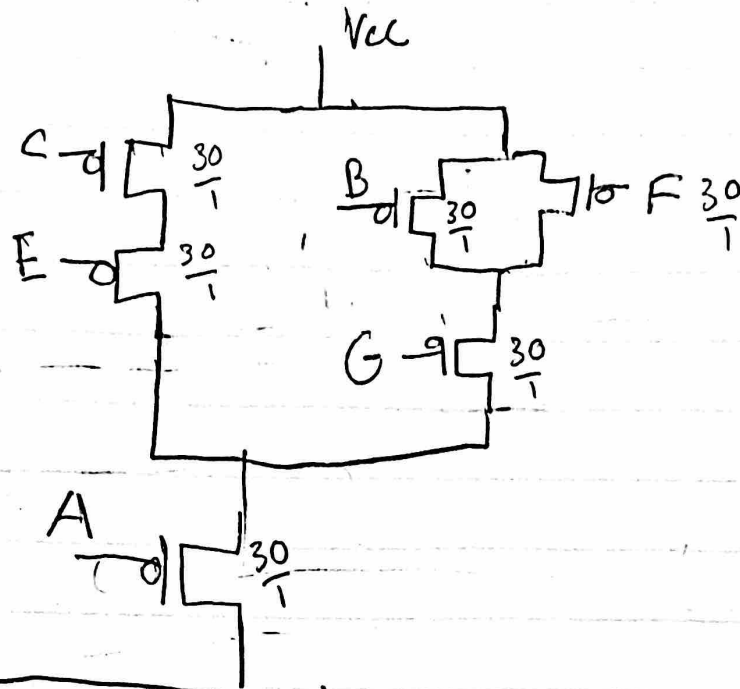 Vcc
C 30/1
B 30/1 F 30/1
E 30/1
G 30/1
A 30/1